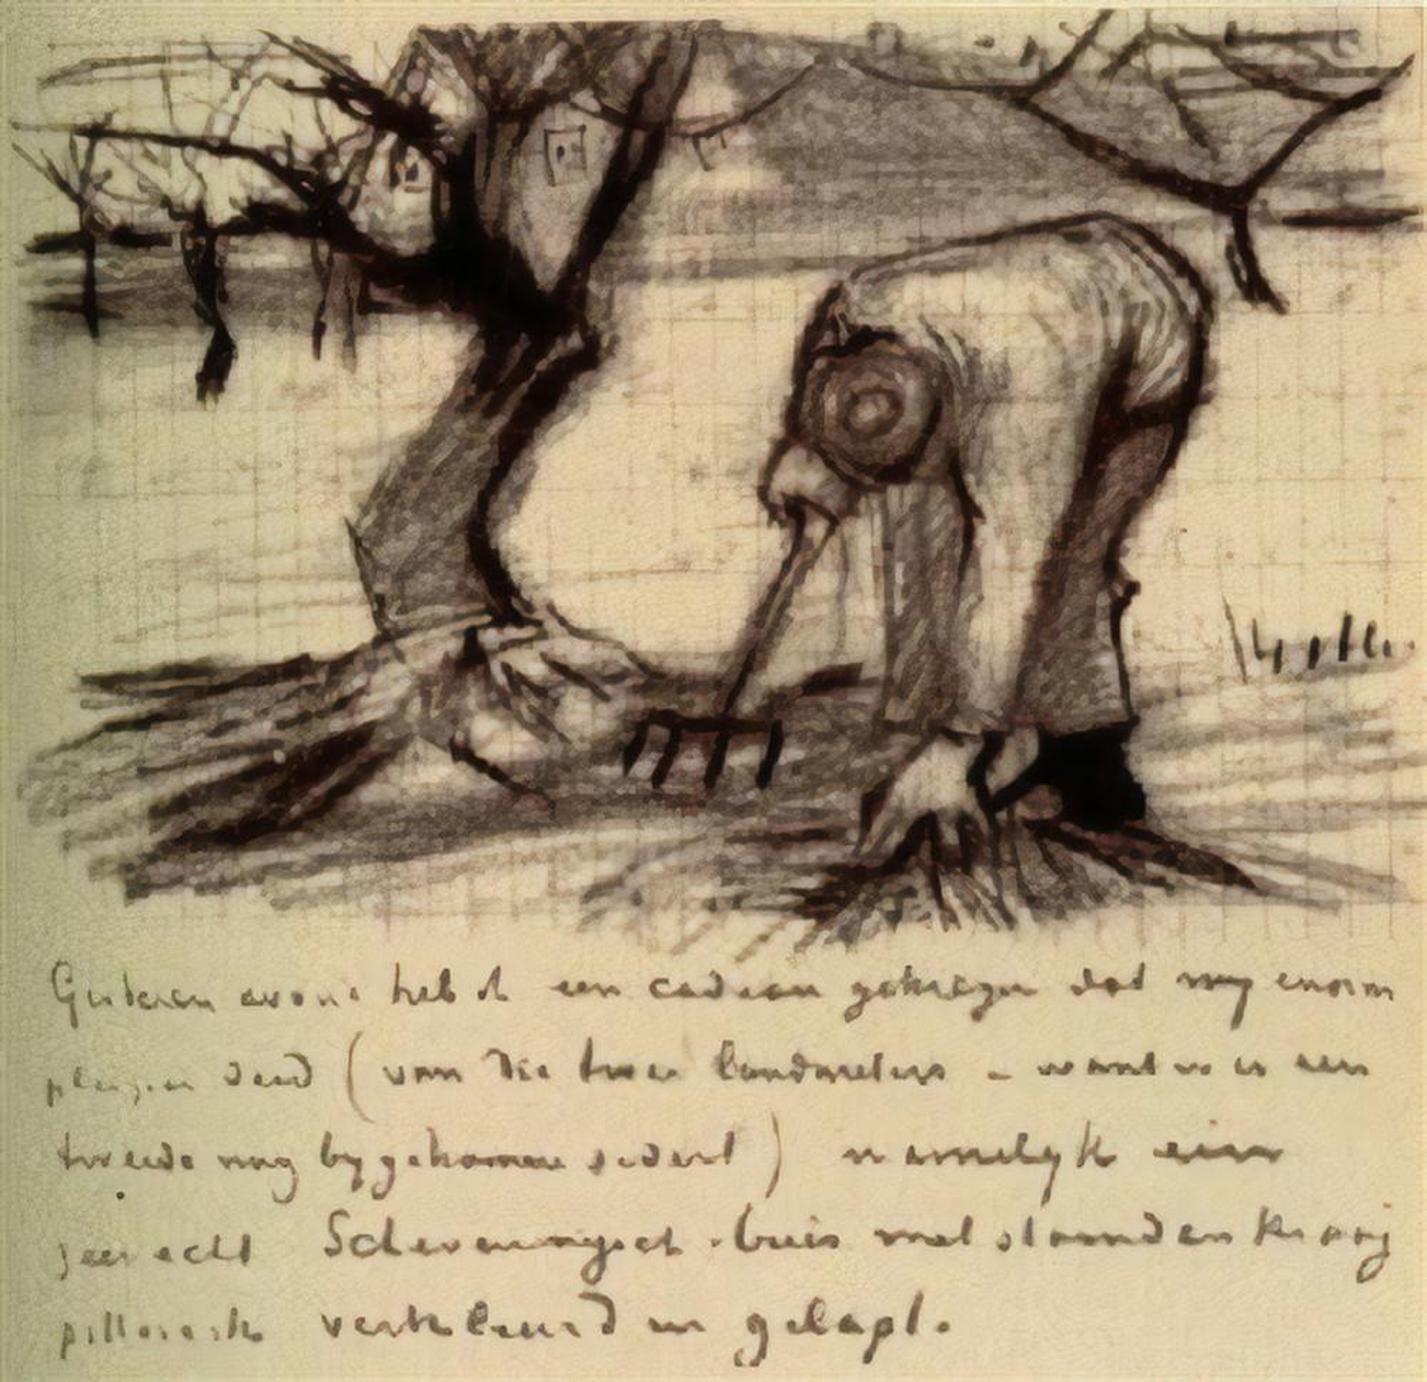 Gisteren avond heb ik een cadeau gekregen dat mij enorm
plezier deed (van die twee landmeters – want er is een
tweede nog bijgekomen sedert) namelijk een
zeer echt Scheveningsch buis met staanden kraag
pittoresk verkleurd en gelapt.